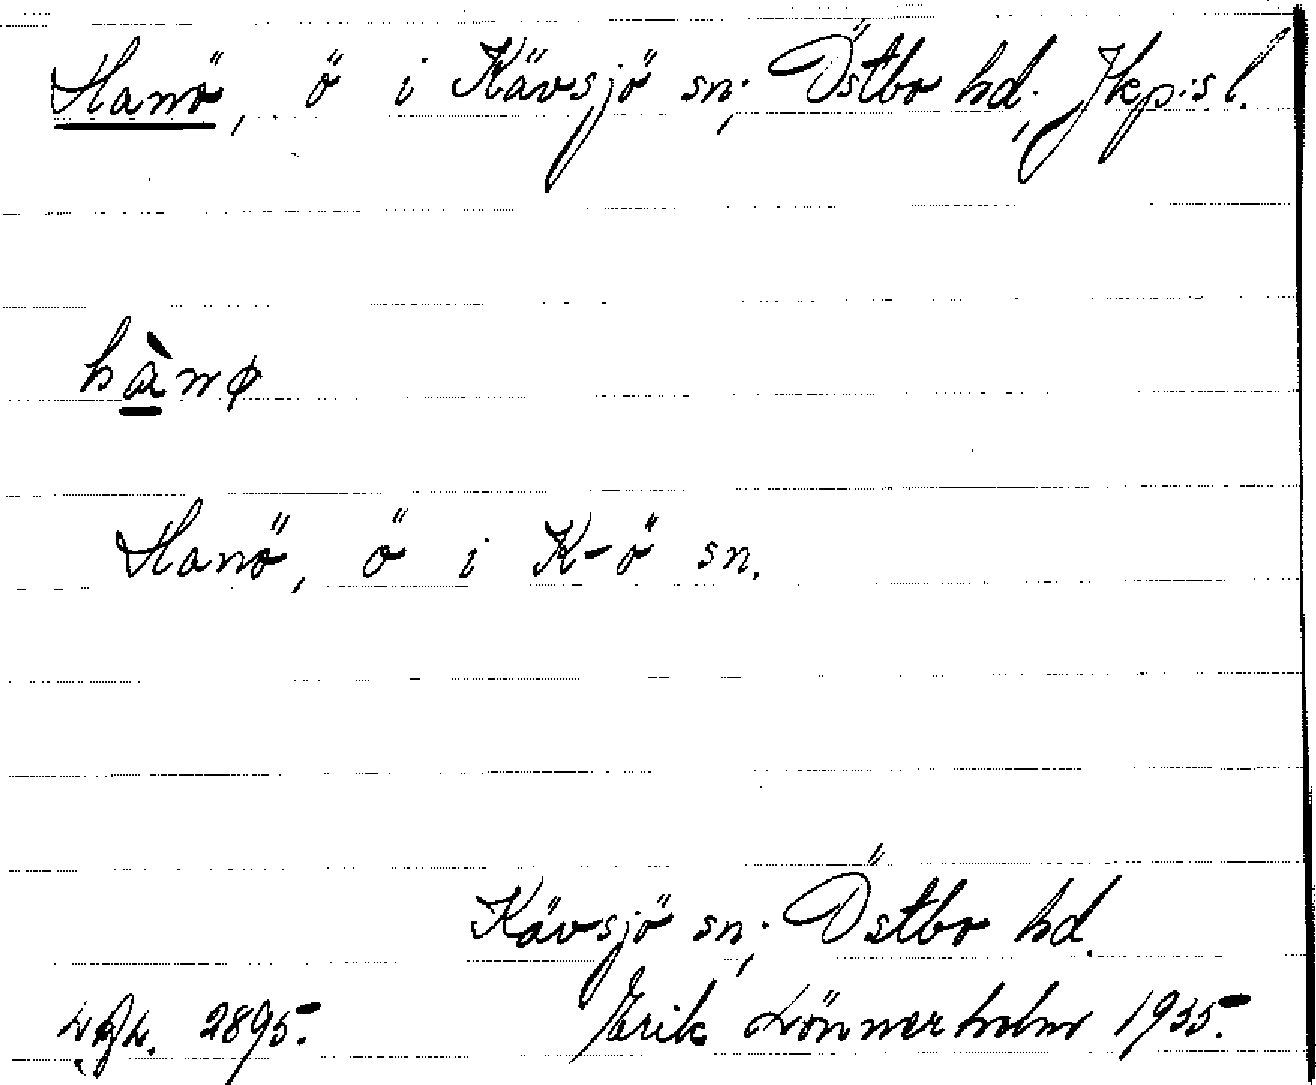 Hanö, ö i Kävsjö sn., Östbo hd., Jkp:s l.
hànø
Hanö, ö i K-ö sn.
Kävsjö sn., Östbo hd.
2895. Erik Lönnerholm 1935.